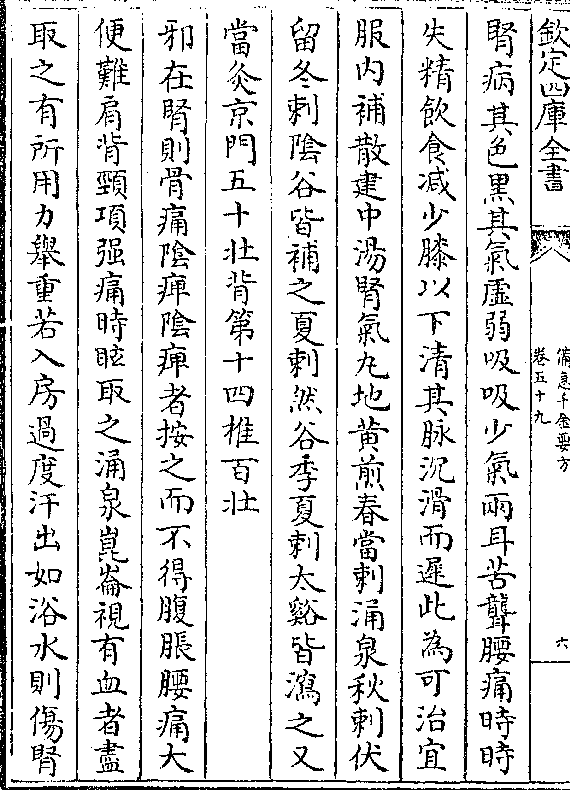 欽定四庫全書
備急千金要方
卷五十九
六
腎病其色黑其氣虛弱吸吸少氣兩耳苦聾腰痛時時
失精飲食减少膝以下清其脉沉滑而遲此為可治宜
服内補散建中湯腎氣丸地黄煎春當刺涌泉秋刺伏
留冬刺陰谷皆補之夏刺然谷季夏刺太谿皆瀉之又
當灸京門五十壯背第十四椎百壯
邪在腎則骨痛陰痺陰痺者按之而不得腹脹腰痛大
便難肩背頸項强痛時眩取之涌泉崑崙視有血者盡
取之有所用力舉重若入房過度汗出如浴水則傷腎